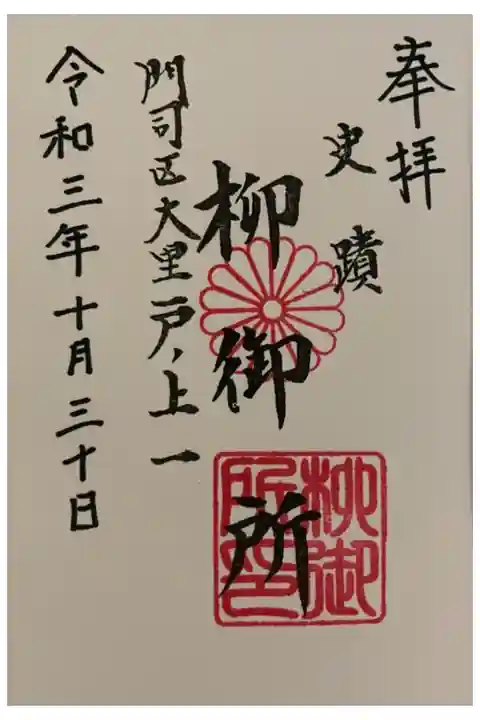 奉拝
史蹟
柳御所
柳御所印
門司区大里戸ノ上一
令和三年十月三十日